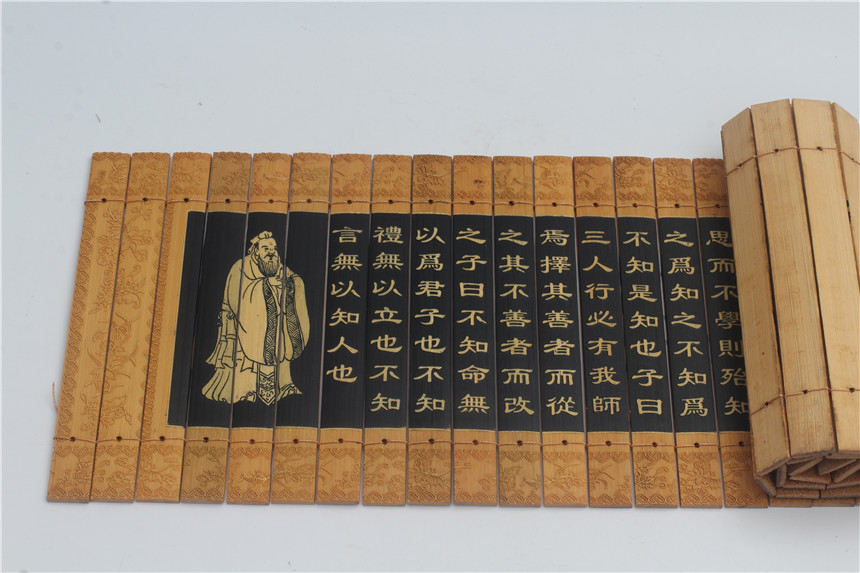 思而不學則殆知
之爲知之不知爲
不知是知也子曰
三人行必有我師
焉擇其善者而從
之其不善者而改
之子曰不知命無
以爲君子也不知
禮無以立也不知
言無以知人也